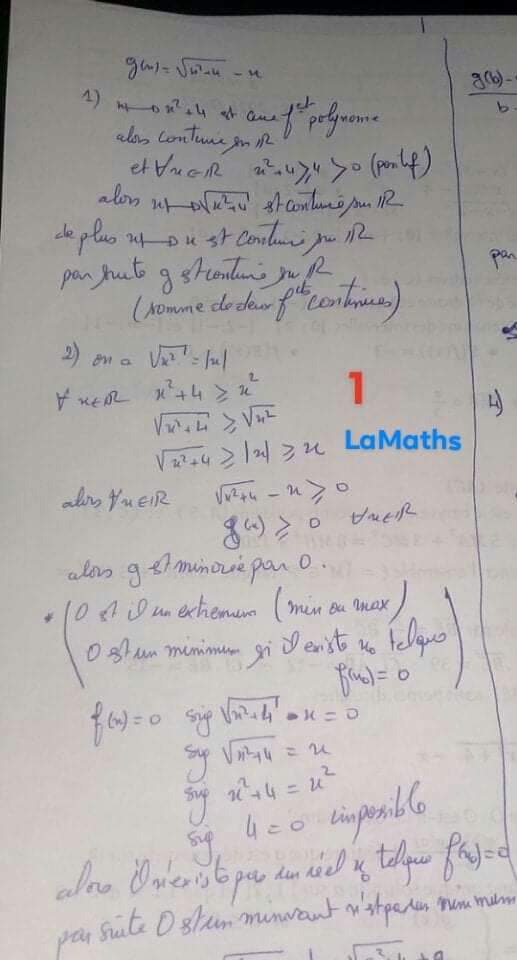 g(x) = √x²+4 - x
1) x ↦ x²+4 est une f° polynome
alors continue sur ℝ
et ∀x∈ℝ x²+4 ≥ 4 > 0 (positif)
alors x ↦ √x²+4 est continue sur ℝ
de plus x ↦ x est continue sur ℝ
par suite g est continue sur ℝ
(somme de deux f cts continues)
2) on a √x² = |x|
∀x∈ℝ x²+4 ≥ x²
√x²+4 ≥ √x²
√x²+4 ≥ |x| ≥ x
alors ∀x∈ℝ √x²+4 - x ≥ 0
g(x) ≥ 0 ∀x∈ℝ
alors g est minorée par 0.
* (0 est il un extremum (min ou max)
0 est un minimum si il existe x₀ tel que
f(x₀) = 0)
f(x) = 0 sig √x²+4 - x = 0
sig √x²+4 = x
sig x²+4 = x²
sig 4 = 0 impossible
alors il n'existe pas un réel x₀ tel que f(x₀) = 0
par suite 0 est un minorant n'est pas un minimum
1
LaMaths
g(b) -
b -
par
4)